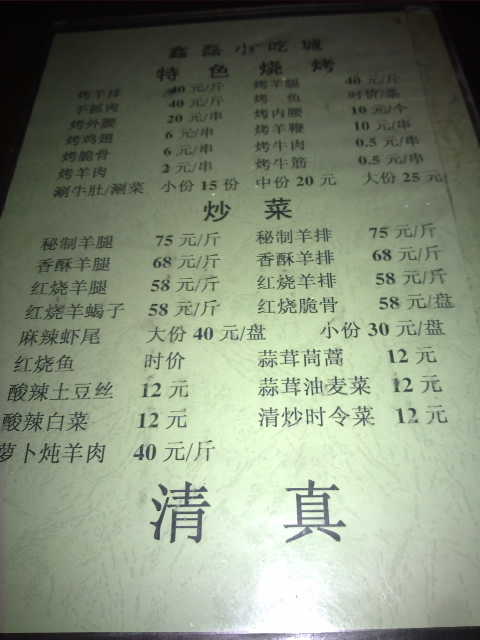 鑫磊小吃城
特色烧烤
烤羊排 40 元/斤 烤羊腿 40 元/斤
手抓肉 40 元/斤 烤鱼 时价/条
烤外腰 20 元/串 烤内腰 10 元/个
烤鸡翅 6 元/串 烤羊鞭 10 元/串
烤脆骨 6 元/串 烤牛肉 0.5 元/串
烤羊肉 2 元/串 烤牛筋 0.5 元/串
涮牛肚/涮菜 小份 15 份 中份 20 元 大份 25 元
炒菜
秘制羊腿 75 元/斤 秘制羊排 75 元/斤
香酥羊腿 68 元/斤 香酥羊排 68 元/斤
红烧羊腿 58 元/斤 红烧羊排 58 元/斤
红烧羊蝎子 58 元/斤 红烧脆骨 58 元/盘
麻辣虾尾 大份 40 元/盘 小份 30 元/盘
红烧鱼 时价 蒜茸茼蒿 12 元
酸辣土豆丝 12 元 蒜茸油麦菜 12 元
酸辣白菜 12 元 清炒时令菜 12 元
萝卜炖羊肉 40 元/斤
清真